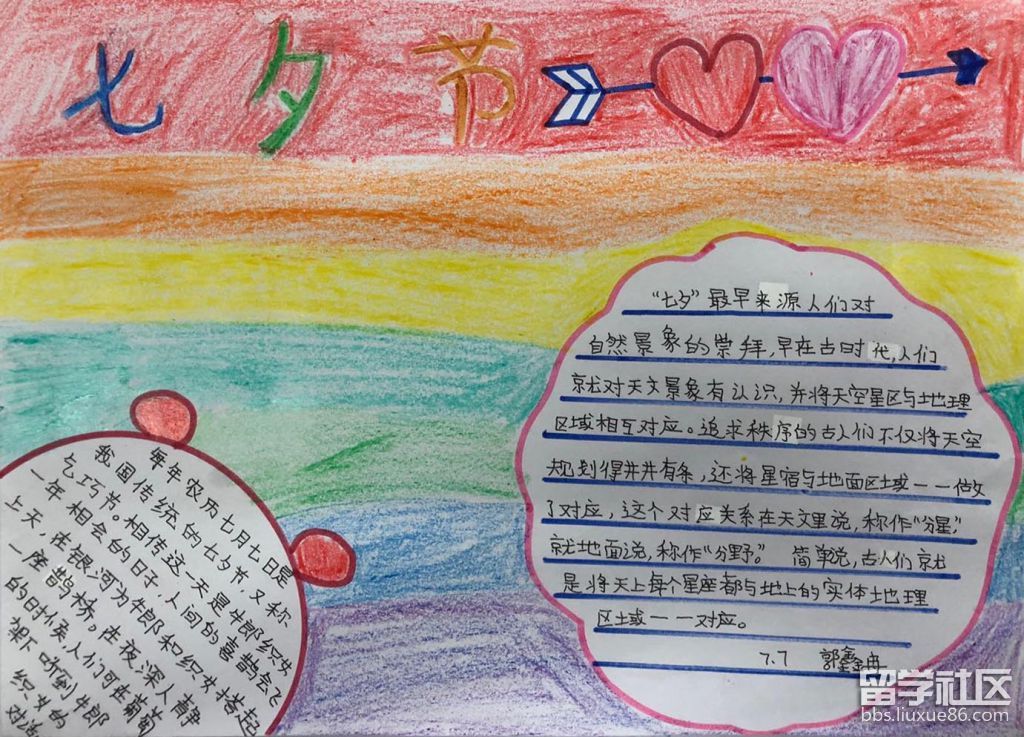 七夕节
“七夕”最早来源人们对
自然景象的崇拜,早在古时代,人们
就对天文景象有认识,并将天空星区与地理
区域相互对应。追求秩序的古人们不仅将天空
规划得井井有条,还将星宿与地面区域一一做
了对应,这个对应关系在天文里说,称作“分星”,
就地面说,称作“分野。” 简单说,古人们就
是将天上每个星座都与地上的实体地理
区域一一对应。
7.7 郭鑫冉
每年农历七月七日是
我国传统的七夕节,又称
乞巧节。相传这一天是牛郎织女
一年相会的日子,人间的喜鹊会飞
上天,在银河为牛郎和织女搭起
一座鹊桥。在夜深人静
的时候,人们可在葡萄
架下听到牛郎
织女的
对话
留学社区
bbs.liuxue86.com